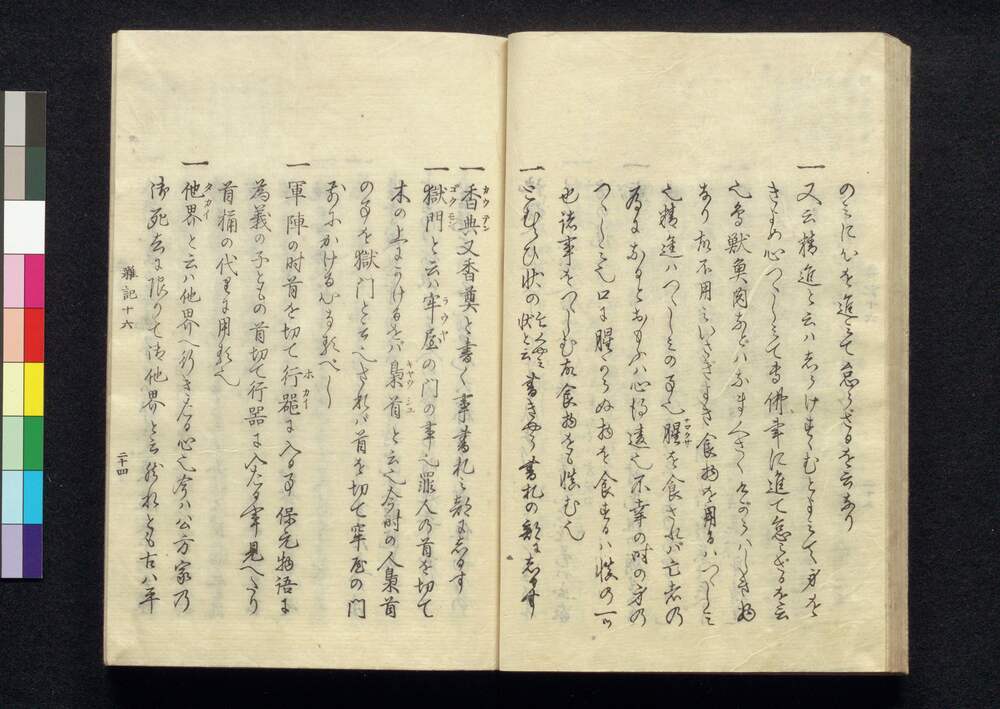 のミに心を進ミて怠らざるを云あり
一又云精進と云ハ志うけすゝむとよミて身を
きよめ心つゝしミて専佛事に進て怠らざるを云
之鳥獣魚肉なとハなまくさくけからハしき物
あり故不用之いさぎよき食物を用るハつゝしミ
之精進ハつゝしミの事也腥を食されバ亡者の
為になるとおもふハ心得違也不幸の時の身の
つゝしミ也口に腥からぬ物を食するハ慎の一ツ
也諸事をつゝしむ故食物をも慎む也
一とむらひ状の 状と云 書きやう書札の部にしるす
一香典又香奠と書く事書札之部にしるす
カウデン
一獄門と云ハ牢屋の門の事也罪人の首を切て
ゴクモン ラウヤ
木の上にかけるをバ梟首と云也今時の人梟首
キヤウシユ
の事を獄門と云へされバ首を切て牢屋の門
前にかける心なるべし
一軍陣の時首を切て行器に入る事保元物語に
ホカイ
為義の子ともの首切て行器に入たる事見へたり
首桶の代りに用る也
一他界と云ハ他界へ行きたる心也今ハ公方家乃
タカイ
御死去に限りて御他界と云然れとも古ハ平
雑記十六
二十四